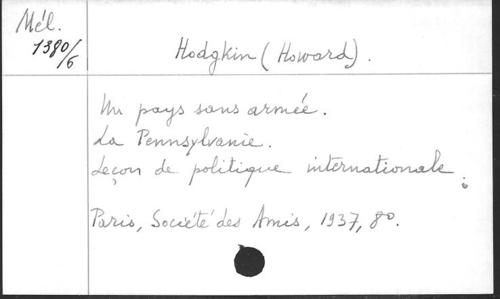 Mél.
1380/6
Hodgkin (Howard).
Un pays sans armée.
La Pennsylvanie.
Leçon de politique internationale.
Paris, Société des Amis, 1937, 8°.